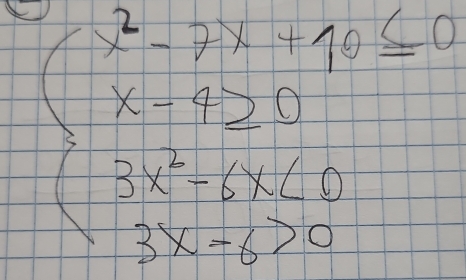 x² - 7x + 10 ≤ 0
x - 4 ≥ 0
3x² - 6x < 0
3x - 6 > 0